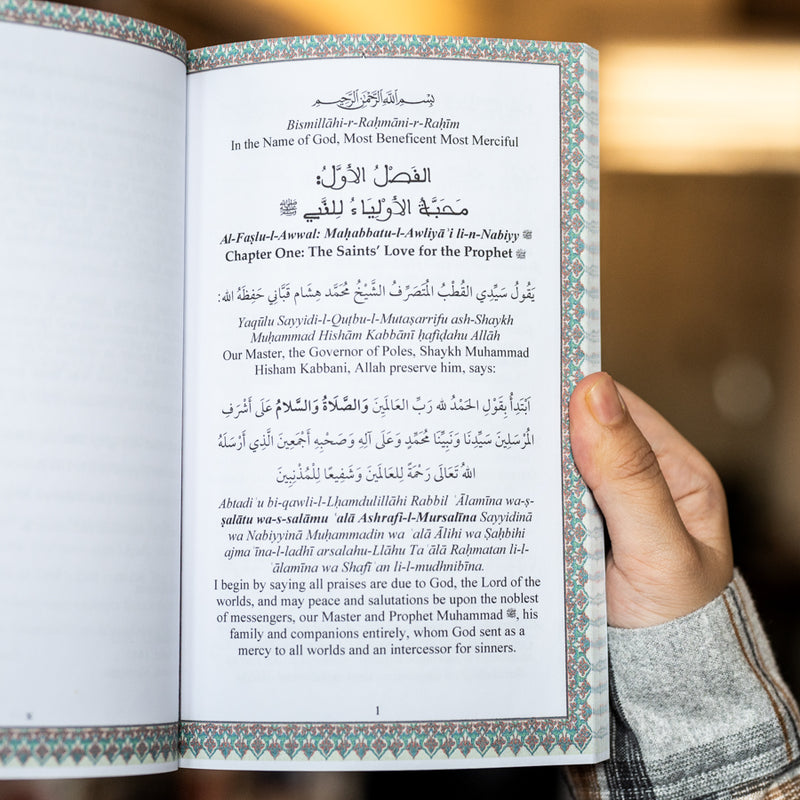 بِسْمِ اللهِ الرَّحْمٰنِ الرَّحِيْمِ
Bismillāhi-r-Raḥmāni-r-Raḥīm
In the Name of God, Most Beneficent Most Merciful
الفَصْلُ الأَوَّلُ:
مَحَبَّةُ الأَوْلِيَاءُ لِلنَّبِي ﷺ
Al-Faṣlu-l-Awwal: Maḥabbatu-l-Awliyāʾi li-n-Nabiyy ﷺ
Chapter One: The Saints’ Love for the Prophet ﷺ
يَقُولُ سَيِّدِي القُطْبُ المُتَصَرِّفُ الشَّيْخُ مُحَمَّد هِشَام قَبَّانِي حَفِظَهُ الله:
Yaqūlu Sayyidi-l-Quṭbu-l-Mutaṣarrifu ash-Shaykh
Muḥammad Hishām Kabbānī ḥafiḍahu Allāh
Our Master, the Governor of Poles, Shaykh Muhammad
Hisham Kabbani, Allah preserve him, says:
اَبْتَدِأُ بِقَوْلِ الحَمْدُ لله رَبِّ العَالَمِيْنَ وَالصَّلَاةُ وَالسَّلامُ عَلَى أَشْرَفِ
المُرْسَلِينَ سَيِّدِنَا وَنَبِيِّنَا مُحَمَّدٍ وَعَلَى آلِهِ وَصَحْبِهِ أَجْمَعِينَ الَّذِي أَرْسَلَهُ
اللهُ تَعَالَى رَحْمَةً لِلعَالَمِينَ وَشَفِيعًا لِلْمُذْنِبِينَ
Abtadiʾu bi-qawli-l-Lḥamdulillāhi Rabbil ʿĀlamīna wa-ṣ-
ṣalātu wa-s-salāmu ʿalā Ashrafi-l-Mursalīna Sayyidinā
wa Nabiyyinā Muḥammadin wa ʿalā Ālihi wa Ṣaḥbihi
ajmaʿīna-l-ladhī arsalahu-Llāhu Taʿālā Raḥmatan li-l-
ʿālamīna wa Shafīʿan li-l-mudhnibīna.
I begin by saying all praises are due to God, the Lord of the
worlds, and may peace and salutations be upon the noblest
of messengers, our Master and Prophet Muhammad ﷺ, his
family and companions entirely, whom God sent as a
mercy to all worlds and an intercessor for sinners.
1